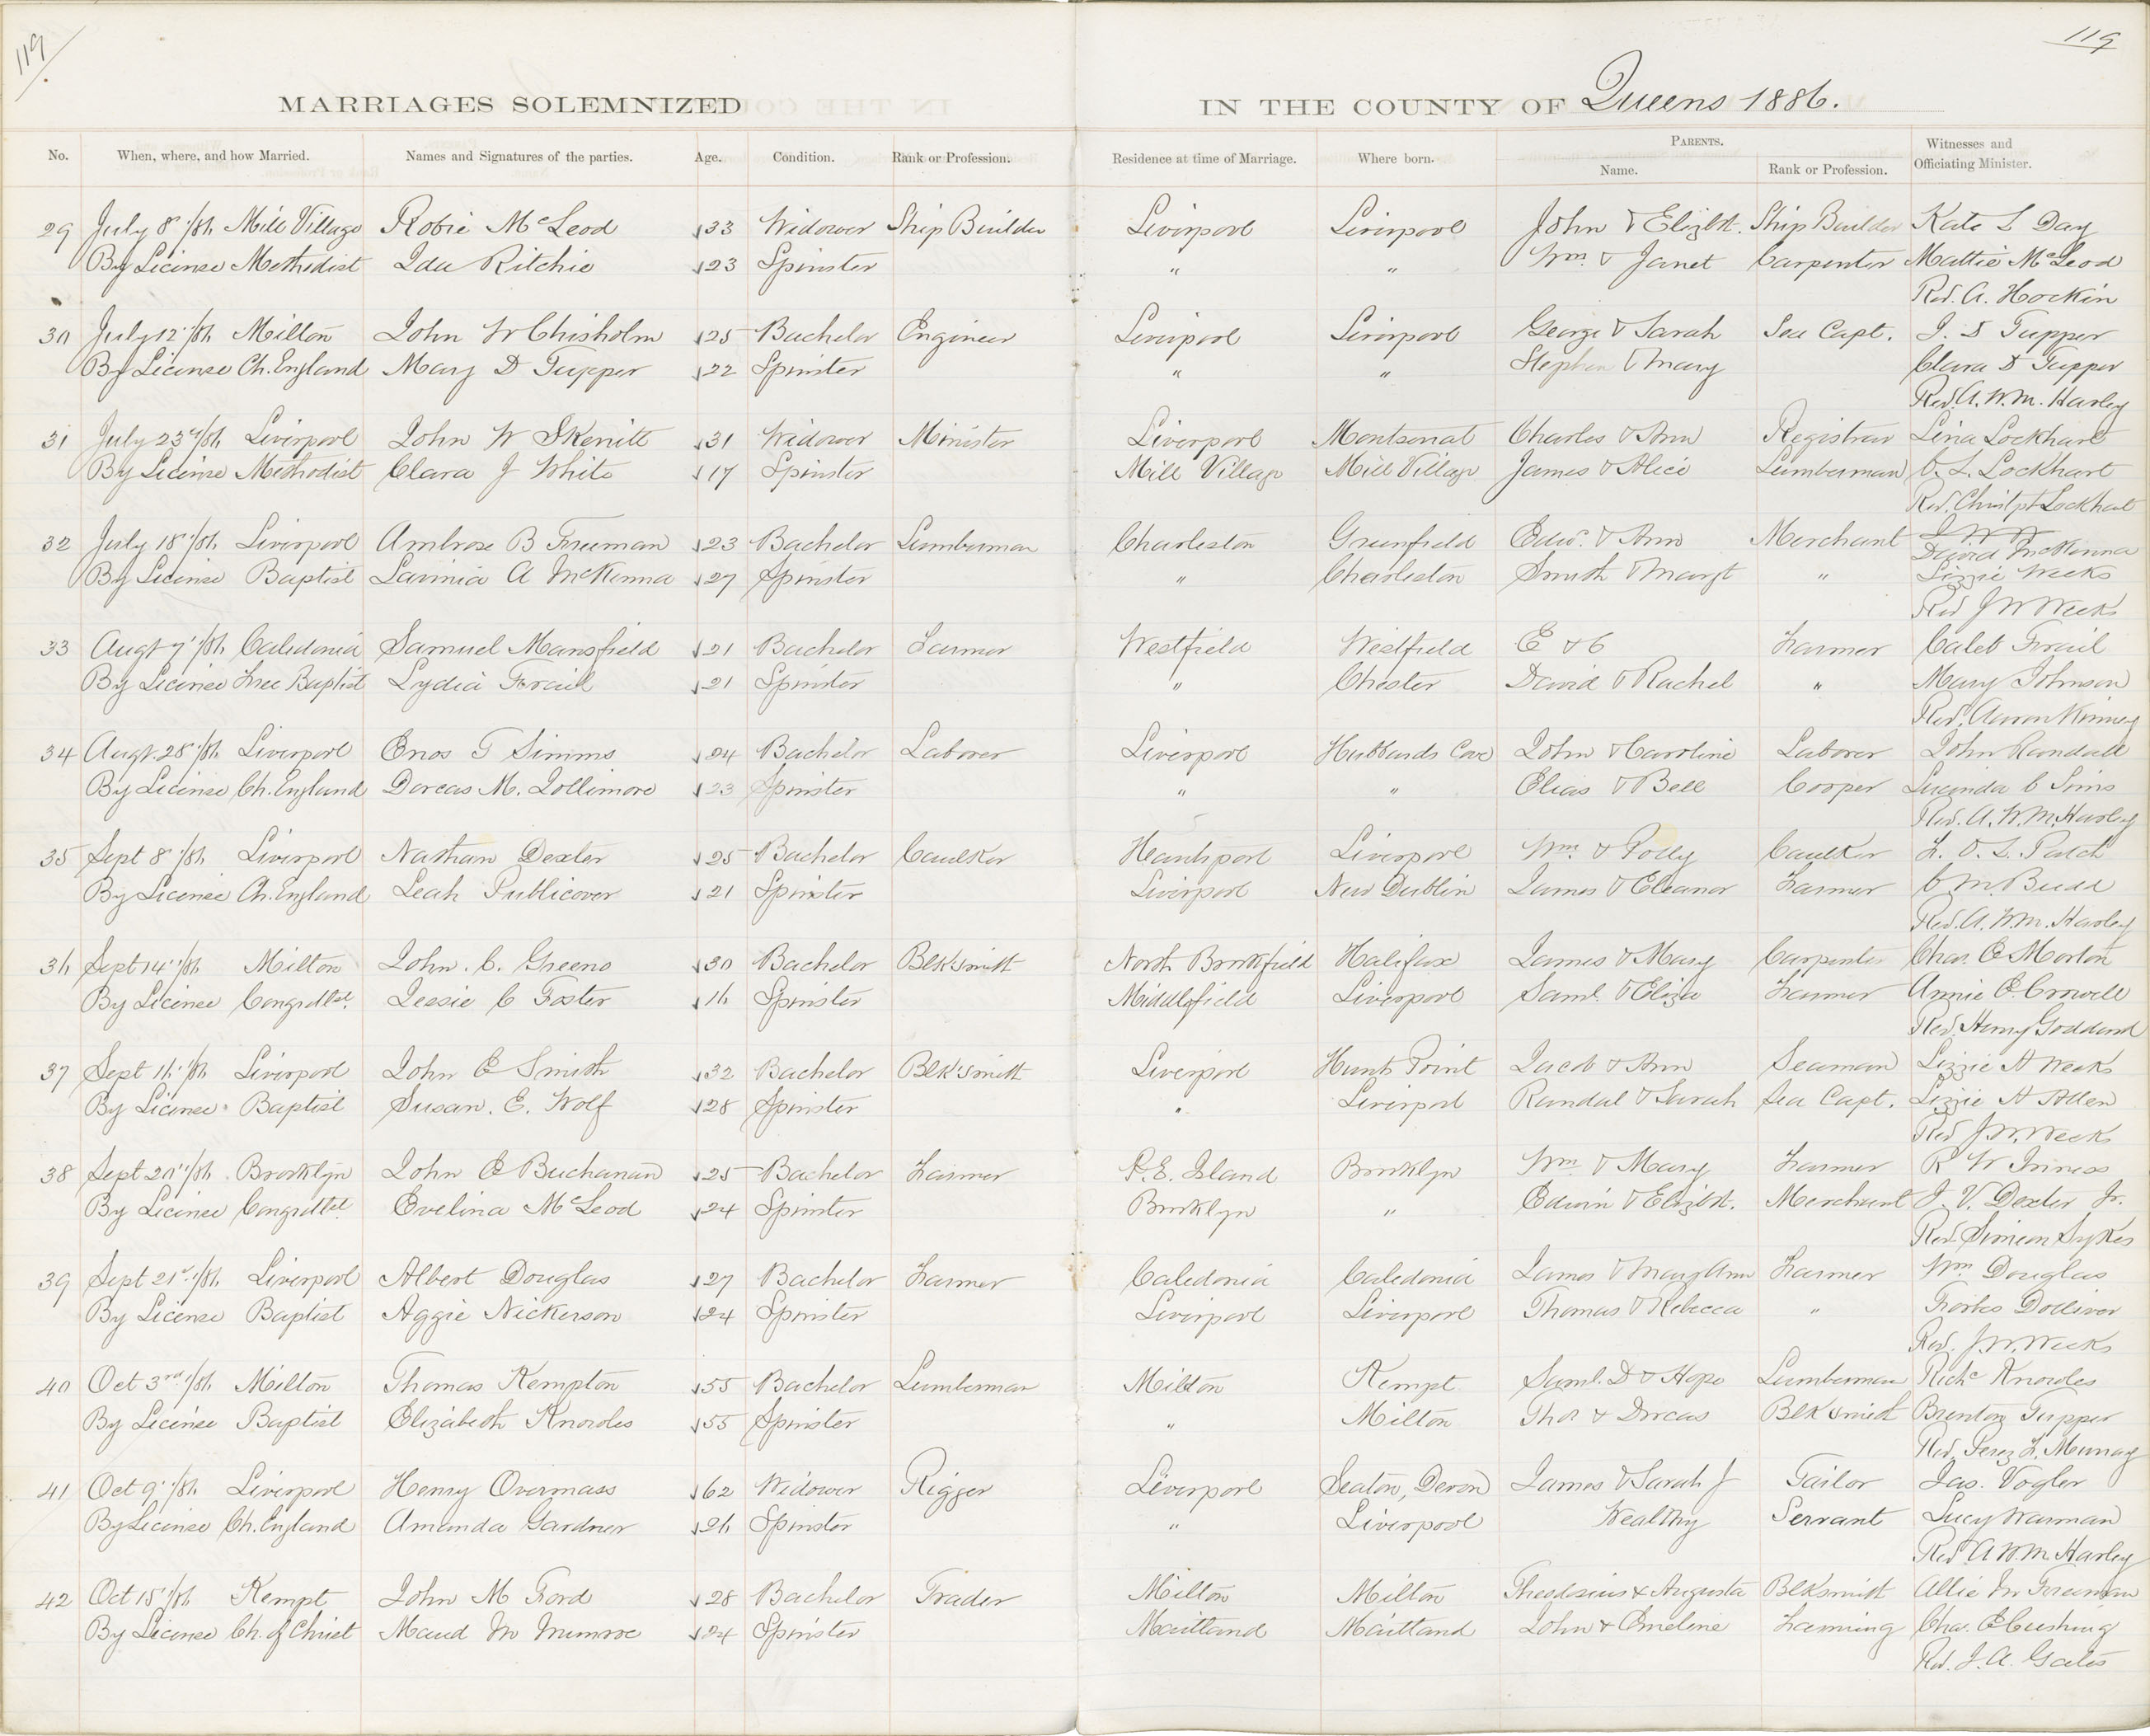 119
119
MARRIAGES SOLEMNIZED IN THE COUNTY OF Queens 1886.
No. When, where, and how Married. Names and Signatures of the parties. Age. Condition. Rank or Profession. Residence at time of Marriage. Where born. PARENTS. Name. Rank or Profession. Witnesses and Officiating Minister.
29 July 8th /86 Mill Village Robie McLeod 33 Widower Ship Builder Liverpool Liverpool John & Elizbt. Ship Builder Kate L Day
By License Methodist Ida Ritchie 23 Spinster " " Wm. & Janet Carpenter Mattie McLeod
Rev. A. Hockin
30 July 12th /86 Milton John W Chisholm 25 Bachelor Engineer Liverpool Liverpool George & Sarah Sea Capt. J. S Tupper
By License Ch. England Mary D Tupper 22 Spinster " " Stephen & Mary Clara D Tupper
Rev. A. W. M. Harley
31 July 23d /86 Liverpool John W Skerritt 31 Widower Minister Liverpool Montserrat Charles & Ann Registrar Lina Lockhart
By License Methodist Clara J White 17 Spinster Mill Village Mill Village James & Alice Lumberman C. L. Lockhart
Rev. Christpr Lockhart
32 July 18th /86 Liverpool Ambrose B Freeman 23 Bachelor Lumberman Charleston Greenfield Edw. & Ann Merchant David McKenna
By License Baptist Lavinia A McKenna 27 Spinster " Charleston Smith & Margt " Lizzie Weeks
Rev J W Weeks
33 Augt 7th /86 Caledonia Samuel Mansfield 21 Bachelor Farmer Westfield Westfield E & C Farmer Caleb Frail
By License Free Baptist Lydia Frail 21 Spinster " Chester David & Rachel " Mary Johnson
Rev. Aaron Kinney
34 Augt. 28th /86 Liverpool Enos T Simms 24 Bachelor Laborer Liverpool Hubbards Cove John & Caroline Laborer John Randall
By License Ch. England Dorcas M. Zollimore 23 Spinster " " Elias & Bell Cooper Lucinda C Sims
Rev. A. W. M. Harley
35 Sept 8th /86 Liverpool Nathan Dexter 25 Bachelor Caulker Hantsport Liverpool Wm. & Polly Caulker L. O. L. Patch
By License Ch. England Leah Publicover 21 Spinster Liverpool New Dublin James & Eleanor Farmer C M. Budd
Rev. A. W. M. Harley
36 Sept 14th /86 Milton John. C. Greeno 30 Bachelor Blk'smith North Brookfield Halifax James & Mary Carpenter Chas. E Morton
By License Congrettl. Jessie C Foster 16 Spinster Middlefield Liverpool Saml. & Eliza Farmer Annie E. Crowell
Rev. Henry Goddard
37 Sept 16th /86 Liverpool John E Smith 32 Bachelor Blk'smith Liverpool Hunts Point Jacob & Ann Seaman Lizzie H Weeks
By License Baptist Susan. E. Wolf 28 Spinster " Liverpool Randal & Sarah Sea Capt. Lizzie H Allen
Rev J. W. Weeks
38 Sept 20th /86 Brooklyn John E Buchanan 25 Bachelor Farmer P. E. Island Brooklyn Wm & Mary Farmer R W Inness
By License Congrettl Evelina McLeod 24 Spinster Brooklyn " Edwin & Elizbt. Merchant J. V. Dexter Jr.
Rev. Simeon Sykes
39 Sept 21st /86 Liverpool Albert Douglas 27 Bachelor Farmer Caledonia Caledonia James & Mary Ann Farmer Wm Douglas
By License Baptist Aggie Nickerson 24 Spinster Liverpool Liverpool Thomas & Rebecca " Forbes Dolliver
Rev. J. W. Weeks
40 Oct 3rd /86 Milton Thomas Kempton 55 Bachelor Lumberman Milton Kempt Saml. D & Hope Lumberman Richd Knowles
By License Baptist Elizabeth Knowles 55 Spinster " Milton Thos & Dorcas Blk'smith Brenton Tupper
Rev. Perez F. Murray
41 Oct 9th /86 Liverpool Henry Overmass 62 Widower Rigger Liverpool Seaton, Devon James & Sarah J Tailor Jas. Vogler
By License Ch. England Amanda Gardner 26 Spinster " Liverpool Wealthy Servant Lucy Warman
Rev A W. M Harley
42 Oct 15th /86 Kempt John M Ford 28 Bachelor Trader Milton Milton Theodosius & Augusta Blksmith Allie M Freeman
By License Ch. of Christ Maud M Munroe 24 Spinster Maitland Maitland John & Emeline Farming Chas. E Cushing
Rev. J. A. Gates